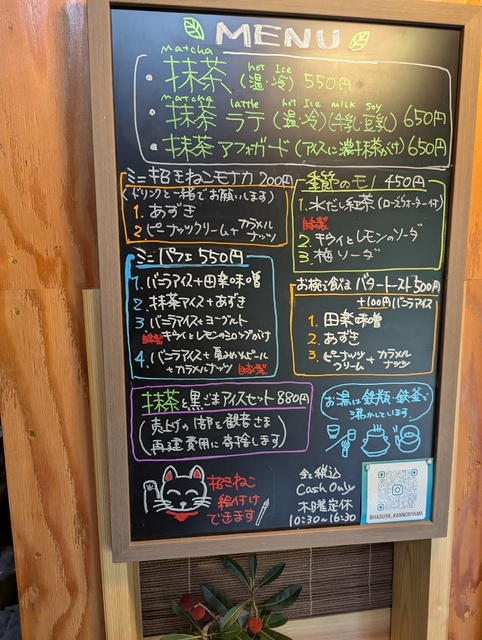 MENU
matcha hot Ice
・抹茶 (温・冷) 550円
matcha lattle hot Ice milk soy
・抹茶 ラテ (温・冷) (牛乳・豆乳) 650円
・抹茶 アフォガード (アイスに濃抹茶がけ) 650円
ミニ招きねこモナカ 200円
(ドリンクと一緒でお願いします)
1. あずき
2. ピーナッツクリーム + カラメルナッツ
季節のモノ 450円
1. 水だし紅茶 (ローズウォーター付)
自家製
2. キウイとレモンのソーダ
3. 梅ソーダ
ミニパフェ 550円
1. バニラアイス+田楽味噌
2. 抹茶アイス+あずき
3. バニラアイス+ヨーグルト
自家製 キウイとレモンのシロップがけ
4. バニラアイス+
+カラメルナッツ 自家製
お椀で食べる バタートースト 500円
+100円バニラアイス
1. 田楽味噌
2. あずき
3. ピーナッツクリーム + カラメルナッツ
抹茶と黒ごまアイスセット 880円
(売上げの1部を観音さま
再建費用に寄捨します)
お湯は鉄瓶・鉄釜で
沸かしています。
招きねこ
絵付け
できます
全て税込
Cash Only
木曜定休
10:30~16:30
@HASUYA_KANNONYAMA